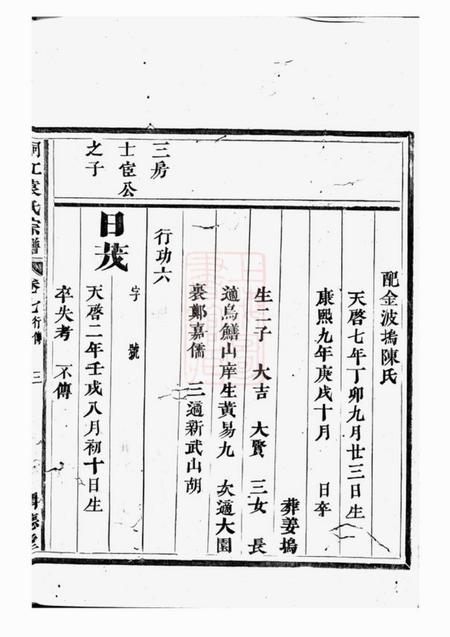 配金波塢陳氏
天啓七年丁卯九月廿三日生
康熙九年庚戌十月　日卒
葬姜塢
生二子　大吉　大賢　三女　長
適烏鱔山庠生黃易九　次適大園
裘鄭嘉儒　三適新武山胡
行功六
三房
士宦公
之子
日茂
字　號
天啓二年壬戌八月初十日生
卒失考　不傳
江袁氏宗譜
卷七行傳
三